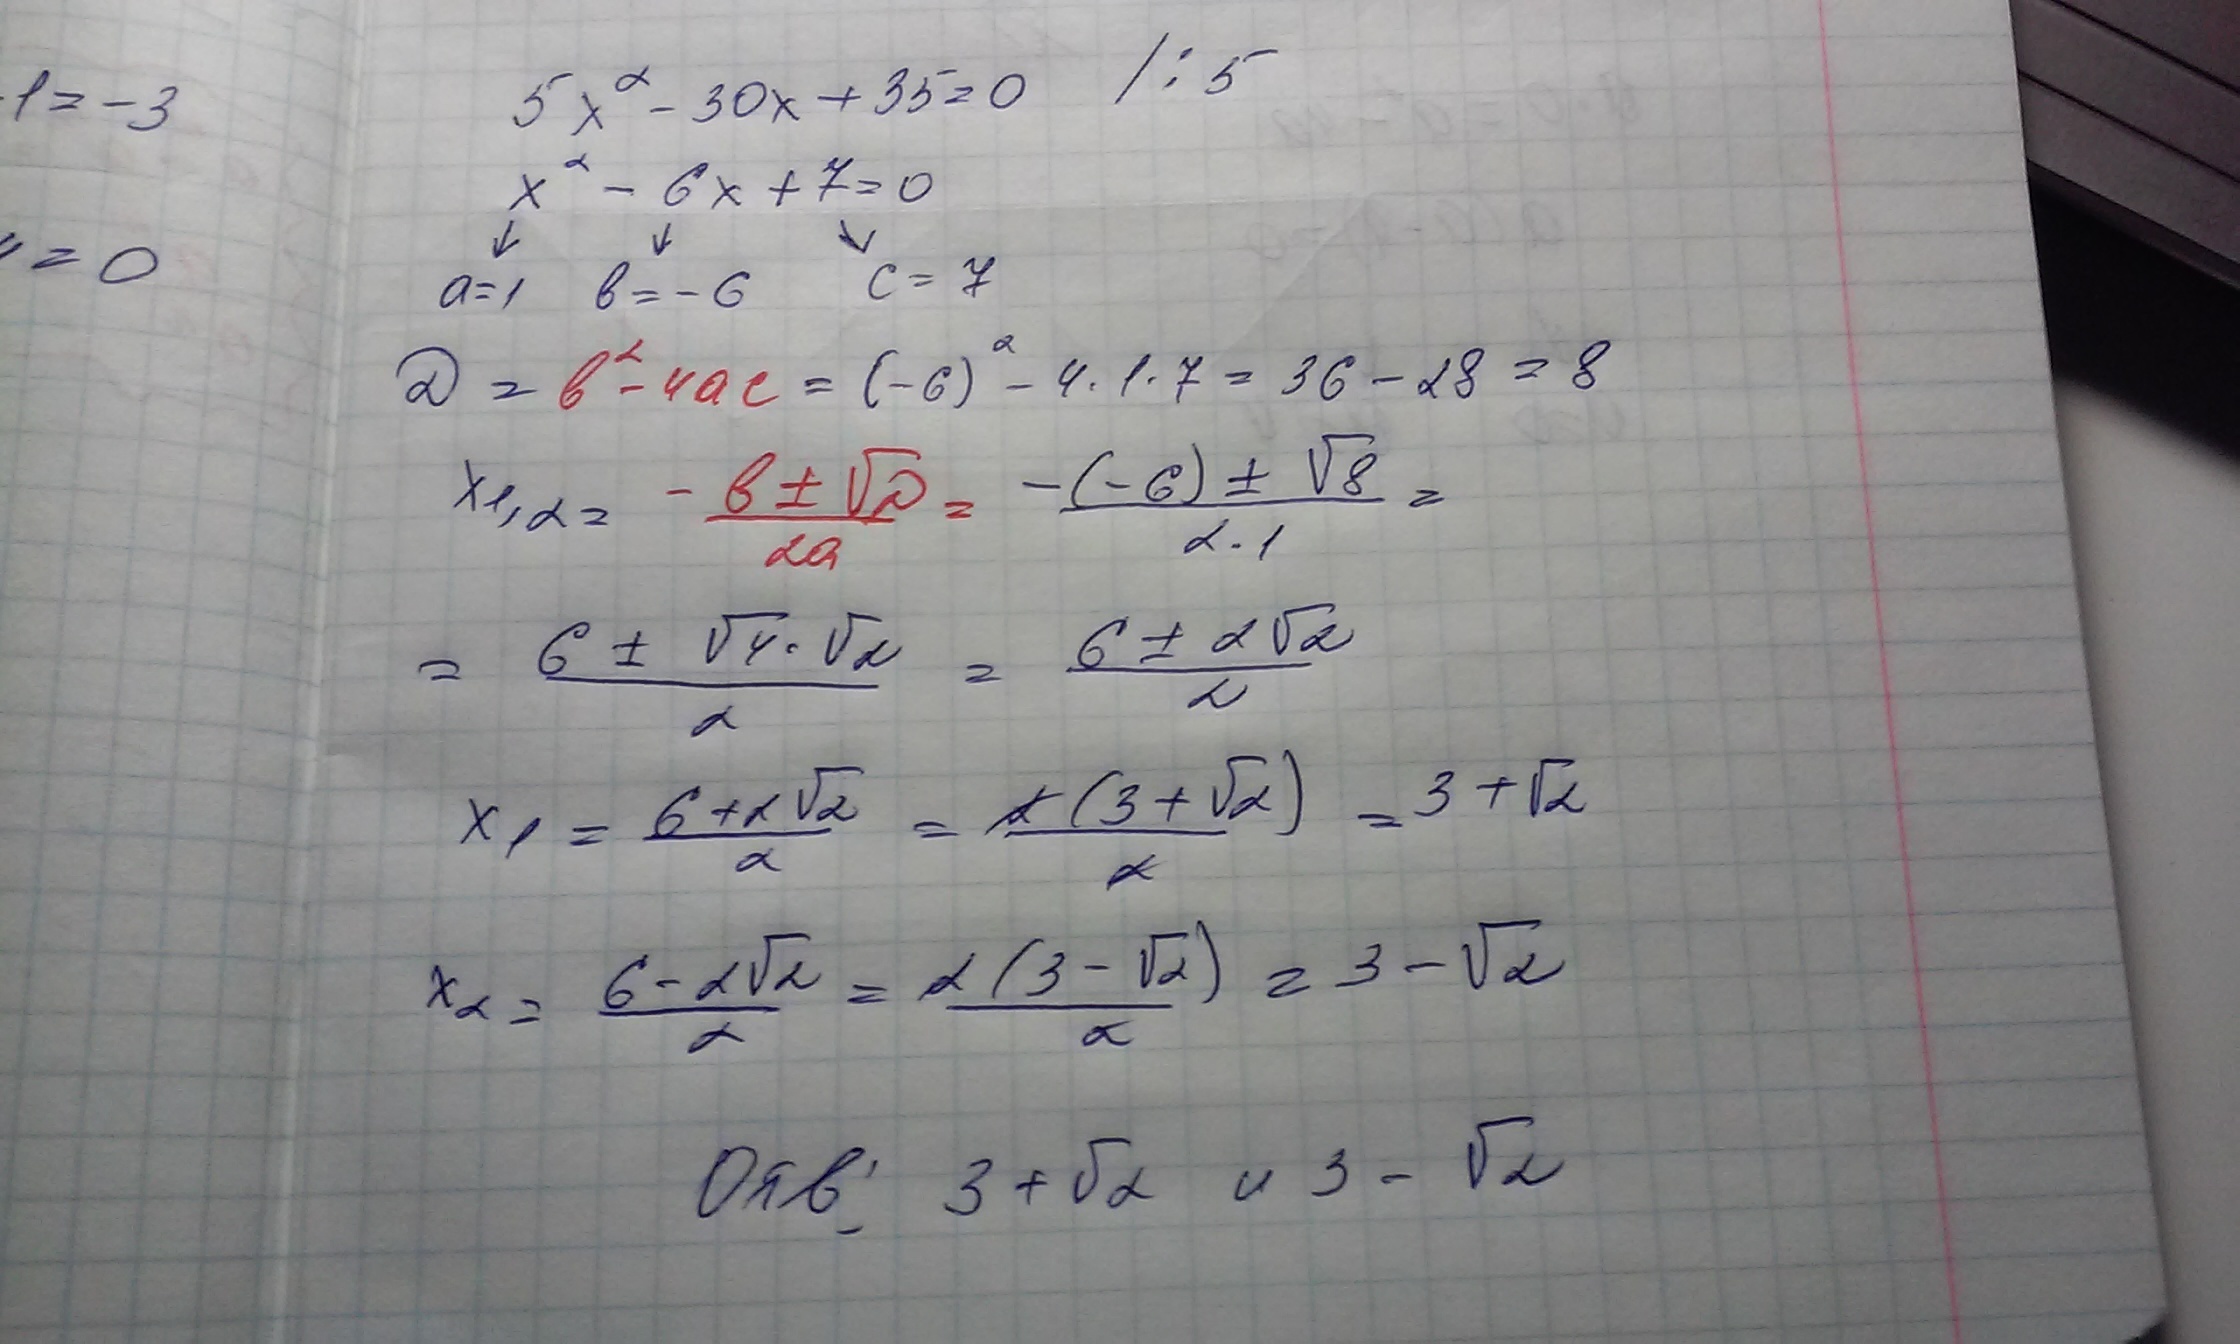 1 = -3
= 0
5x² - 30x + 35 = 0 /:5
x² - 6x + 7 = 0
↓ ↓ ↘
a=1 в=-6 c=7
D = в² - 4ac = (-6)² - 4·1·7 = 36 - 28 = 8
x1,2 = (-в ± √D)/2a = (-(-6) ± √8)/(2·1) =
= (6 ± √4·√2)/2 = (6 ± 2√2)/2
x1 = (6+2√2)/2 = 2(3+√2)/2 = 3+√2
x2 = (6-2√2)/2 = 2(3-√2)/2 = 3-√2
Отв: 3+√2 и 3-√2